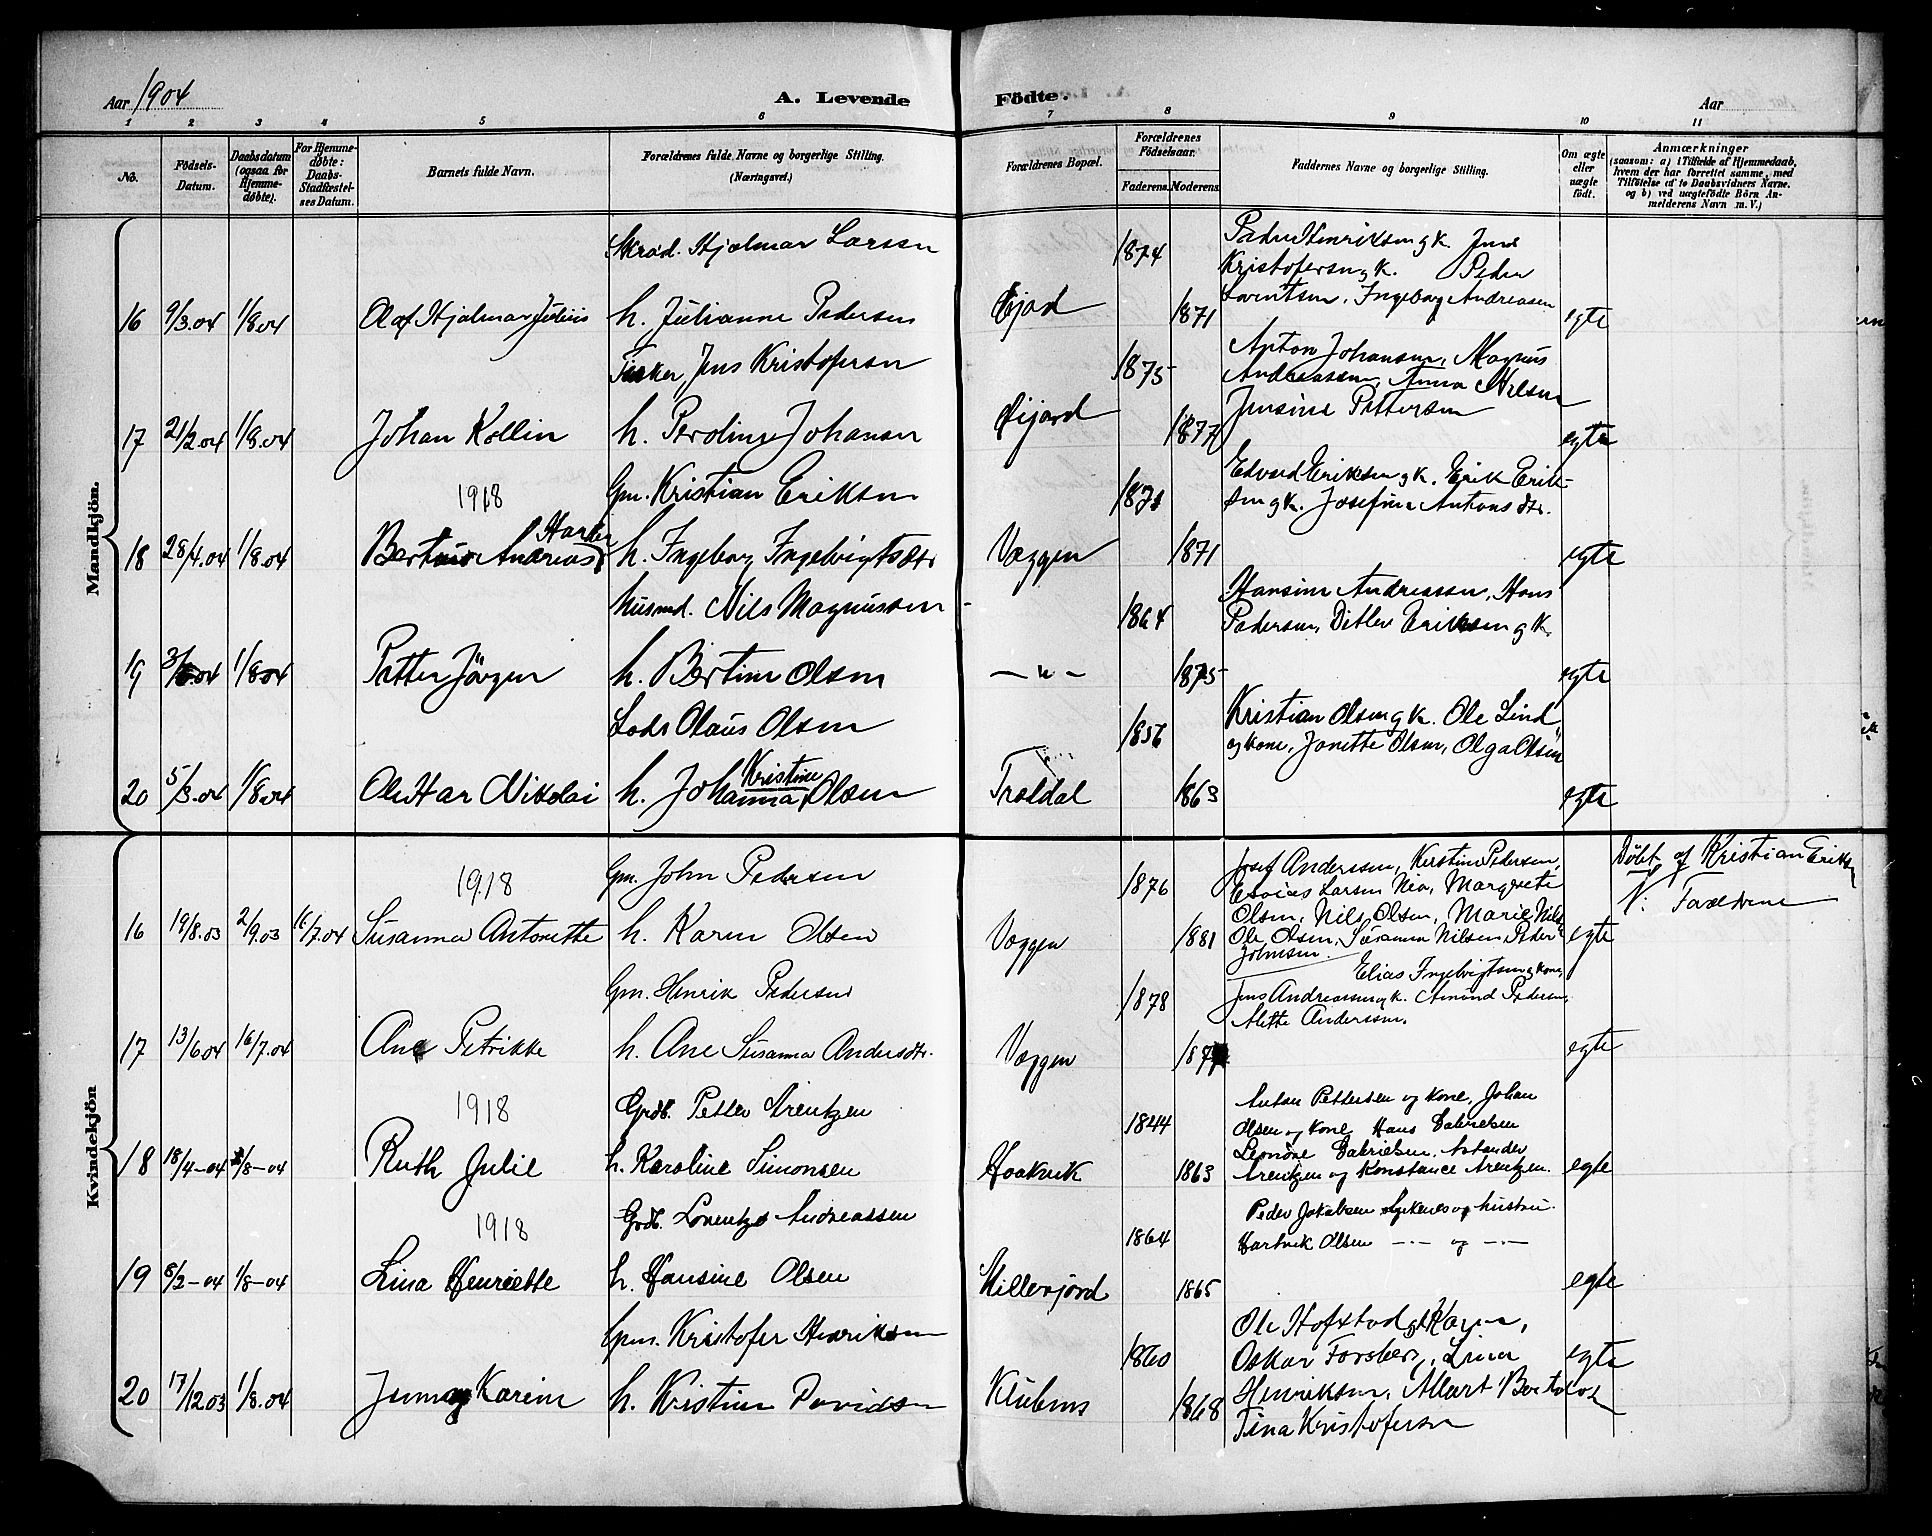 Aar 1904
A. Levende Födte.
Aar
1 2 3 4 5 6 7 8 9 10 11
No.
Födsels-Datum.
Daabsdatum (ogsaa for Hjemme-döbte).
For Hjemme-döbte: Daabs-Stadfæstel-ses Datum.
Barnets fulde Navn.
Forældrenes fulde Navne og borgerlige Stilling.
(Næringsvei.)
Forældrenes Bopæl.
Forældrenes Födselsaar.
Faderens. Moderens.
Faddernes Navne og borgerlige Stilling.
Om ægte eller uægte födt.
Anmærkninger
(saasom: a) i Tilfælde af Hjemmedaab,
hvem der har forrettet samme, med
Tilföielse af to Daabsvidners Navne.
og b) ved uægtefödte Börn An-
melderens Navn m. V.)
Mandkjön.
Skræd. Hjalmar Larsen 1874 Peder Henriksen g k. Jens
Kristofersen g k. Peder
Lorentsen, Ingeborg Andreasen
16 9/3.04 1/8 04 Olaf Hjalmar Julius h. Julianne Pedersen 1871 egte
Fisker, Jens Kristofersen 1875 Anton Johansen, Magnus
Andreassen, Anna Nilsen
Jensine Pettersen
17 21/2.04 1/8.04 Johan Kollin h. Johansen 1877 egte
1918 Gm. Kristian Eriksen Edvard Eriksen g k. Erik Erik-
sen g k. Josefine Antonsdtr.
18 28/4.04 1/8.04 Andreas h. Ingeborg Ingebrigtsdtr Væggen 1871 egte
Husmd. Nils Magnussen 1864 Hansine Andreassen, Hans
Pedersen, Ditlev Eriksen g k.
19 1/8 04 Petter Jörgen h. Bertine Olsen — " — 1875 egte
Lods Olaus Olsen 1856 Kristian Olsen g k. Ole Lind
og kone, Janette Olsen, Olga Olsen
20 5/3.04 1/8 04 Nikolai h. Johanna Kristine Olsen Troldal 1863 egte
Kvindekjön
1918 Gm. John Pedersen 1876 Josef Anderssen, Kerstine Pedersen,
Larsen Margrete
Olsen, Nils Olsen, Marie Nils
16 19/8.03 2/9.03 16/7.04 Susanna Antonette h. Karen Olsen Væggen 1881 Ole Olsen, Susanna Nilsen Peder
Johnsen. egte
Döbt af Kristian Eriksen
V: Forældrene
Gm. Henrik Pedersen 1878 Elias Ingebrigtsen g kone,
Jens Andreassen g k. Amund Pedersen,
Mette Anderssen.
17 13/6 04 16/7.04 Ane Petrikke h. Ane Susanna Andersdtr. Væggen egte
1918 Grdb. Petter Arentzen 1844 Anton Pettersen og kone, Johan
Olsen og kone Hans Gabrielsen
Gabrielsen,
18 18/4-04 1/8-04 Ruth Julie h. Karoline Simonsen 1863 Arentzen og Konstance Arentzen. egte
1918 Grdb. Lorentz Andreassen 1864 Peder Jakobsen og hustru.
Hartvik Olsen —·— og —·—
19 8/2-04 1/8-04 Lina Henriette h. Hansine Olsen Hillerfjord 1865 egte
Gm. Kristofer Henriksen 1860 Ole Hofstad g Karen,
Oskar Forsberg, Lina egte
20 17/12 03 1/8.04 Karine h. Kristine Davidsen Klubnes 1868 Henriksen, Albert
Tina Kristofersen